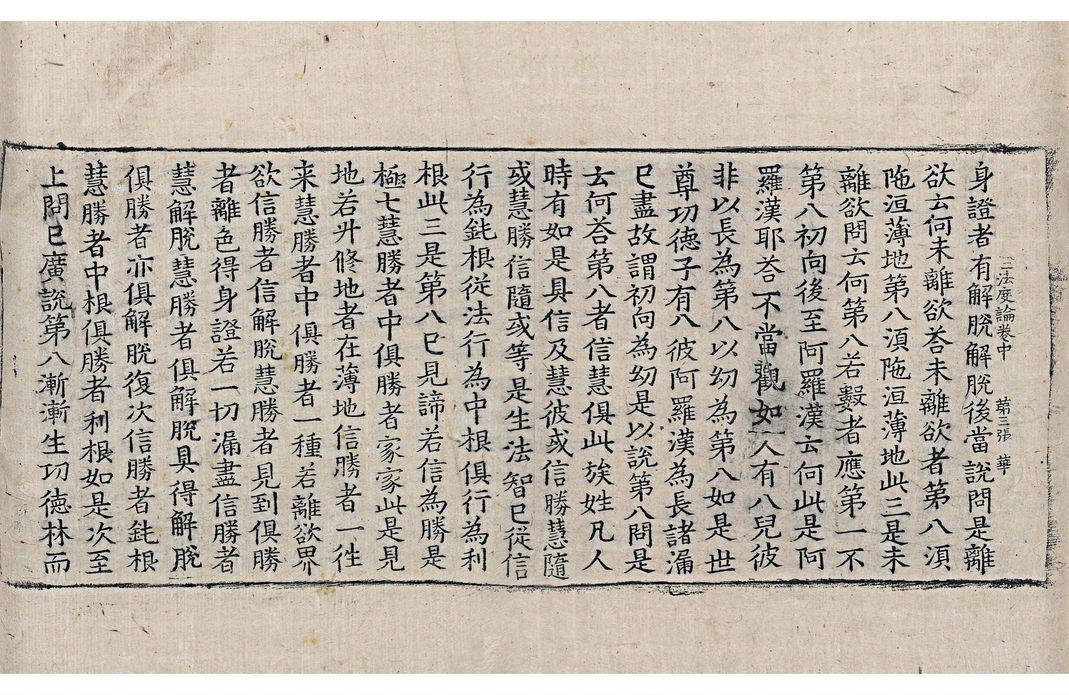 三法度論卷中 第三張 華
身證者有解脫解脫後當說問是離
欲云何未離欲荅未離欲者第八湏
陁洹薄地第八湏陁洹薄地此三是未
離欲問云何第八若數者應第一不
第八初向後至阿羅漢云何此是阿
羅漢耶荅不當觀如一人有八兒彼
非以長為第八以幼為第八如是世
尊功德子有八彼阿羅漢為長諸漏
已盡故謂初向為幼是以說第八問是
云何荅第八者信慧俱此族姓凡人
時有如是具信及慧彼或信勝慧隨
或慧勝信隨或等是生法智已從信
行為鈍根從法行為中根俱行為利
根此三是第八已見諦若信為勝是
極七慧勝者中俱勝者家家此是見
地若升修地者在薄地信勝者一往
来慧勝者中俱勝者一種若離欲界
欲信勝者信解脫慧勝者見到俱勝
者離色得身證若一切漏盡信勝者
慧解脫慧勝者俱解脫具得解脫
俱勝者亦俱解脫復次信勝者鈍根
慧勝者中根俱勝者利根如是次至
上問已廣說第八漸漸生功德林而